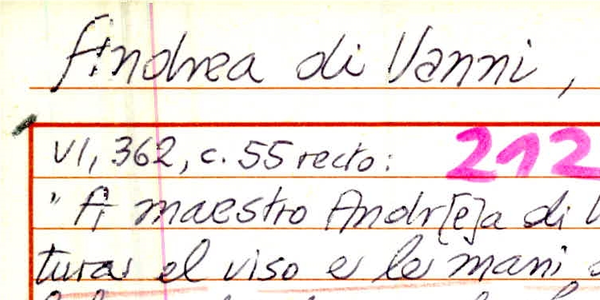 Andrea di Vanni,
VI, 362, c. 55 recto: 212
"A maestro Andr[e]a di
tura el viso e le mani